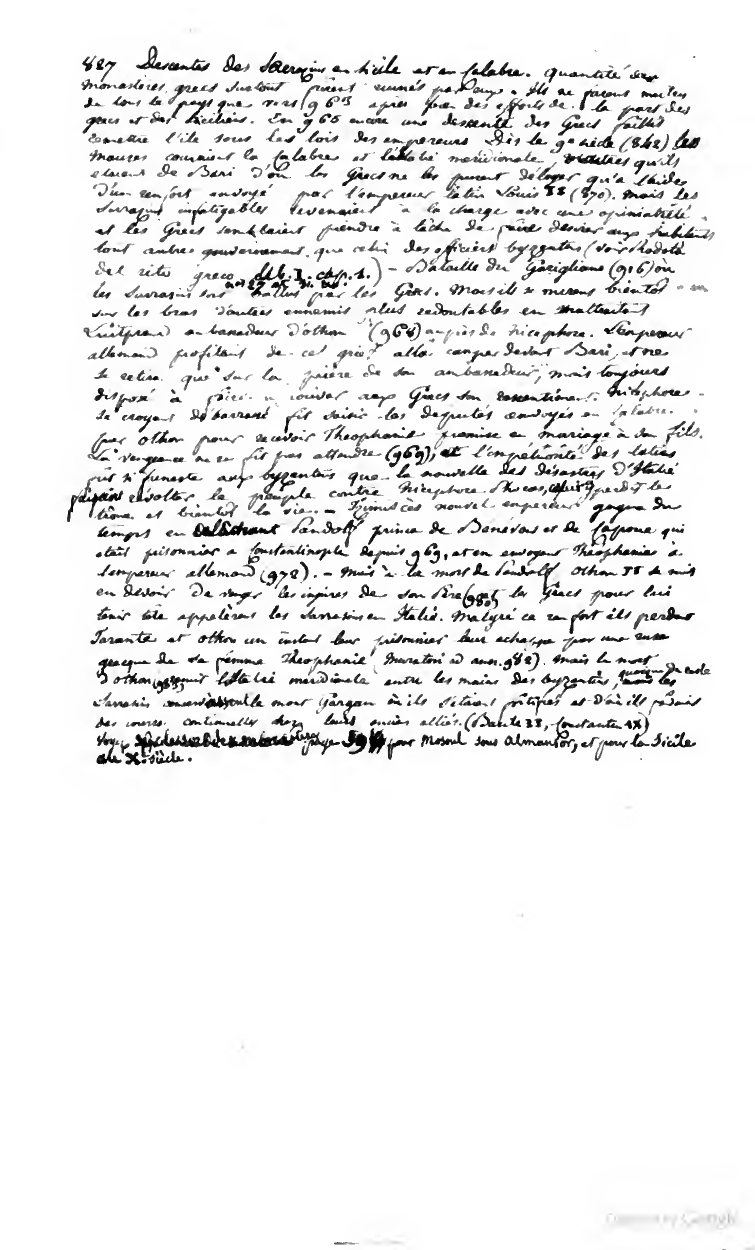 827 Descentes des Sarrasins en Sicile et en Calabre. Quantité de
monastères grecs surtout furent ruinés par eux. Ils ne furent maîtres
de tout le pays que vers 965 après bien des efforts de la part des
grecs et des Siciliens. En 966 encore une descente des Grecs faillit
remettre l'île sous les lois des empereurs. Dès le 9e siècle (842) les
maures couraient la Calabre et l'Italie méridionale, maîtres qu'ils
étaient de Bari d'où les Grecs ne les purent déloger qu'à l'aide
d'un renfort envoyé par l'empereur latin Louis II (870). Mais les
Sarrasins infatigables revenaient à la charge avec une opiniâtreté
et les Grecs semblaient prendre à tâche de faire désirer aux habitants
tout autre gouvernement que celui des officiers byzantins (voir Rodotà
del rito greco Lib. I. chap. 1.) – Bataille du Garigliano (916) où
les Sarrasins sont battus par les Grecs. Mais ils se mirent bientôt
sur les bras d'autres ennemis plus redoutables en maltraitant
Luitprand ambassadeur d'Othon (968) auprès de Nicéphore. L'empereur
allemand profitant de ce grief alla camper devant Bari, et ne
se retira que sur la prière de son ambassadeur, mais toujours
disposé à faire aux Grecs son ressentiment. Nicéphore
se croyant débarrassé fit saisir les députés envoyés en Calabre
par Othon pour recevoir Théophanie promise en mariage à son fils.
La vengeance ne se fit pas attendre (969), et l'impétuosité des latins
fut si funeste aux byzantins que la nouvelle des désastres d'Italie
faisant révolter le peuple contre Nicéphore Phocas, perdit le
trône et bientôt la vie. – Zimiscès nouvel empereur gagna du
temps en relâchant Pandolf prince de Bénévent et de Capoue qui
était prisonnier à Constantinople depuis 969, et en envoyant Théophanie à
l'empereur allemand (972). – Mais à la mort de Pandolf Othon II se mit
en devoir de venger les injures de son père (980) et les Grecs pour lui
tenir tête appelèrent les Sarrasins en Italie. Malgré ce renfort ils perdent
Tarente et Othon un instant leur prisonnier leur échappe par une ruse
grecque de sa femme Théophanie (Muratori ad ann. 982). Mais la mort
d'Othon (983) remit l'Italie méridionale entre les mains des byzantins, les
Sarrasins le mont Gargan où ils s'étaient fortifiés et d'où ils faisaient
des courses continuelles chez leurs anciens alliés. (Basile II, Constantin IX)
Voyez page pour Mosoul sous Almansor, et pour la Sicile
au Xe siècle.